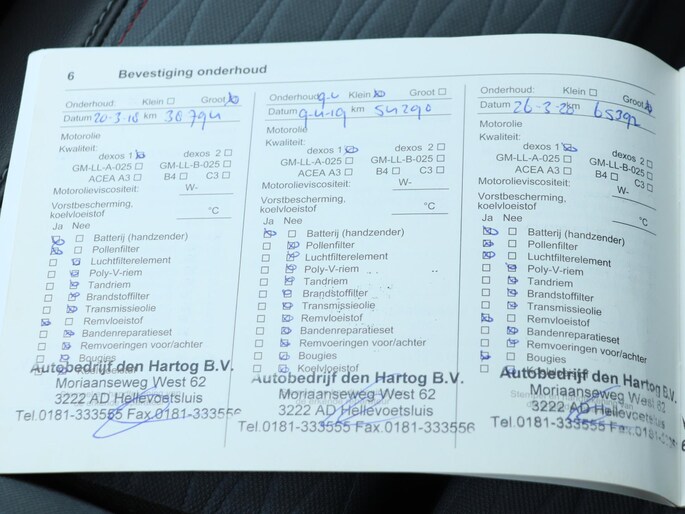 6 Bevestiging onderhoud
Onderhoud: Klein Groot
Datum 20-3-18 km 38794
Motorolie
Kwaliteit:
dexos 1 dexos 2
GM-LL-A-025 GM-LL-B-025
ACEA A3 B4 C3
Motorolieviscositeit: W-
Vorstbescherming,
koelvloeistof °C
Ja Nee
Batterij (handzender)
Pollenfilter
Luchtfilterelement
Poly-V-riem
Tandriem
Brandstoffilter
Transmissieolie
Remvloeistof
Bandenreparatieset
Remvoeringen voor/achter
Bougies
Autobedrijf den Hartog B.V.
Moriaanseweg West 62
3222 AD Hellevoetsluis
Tel.0181-333555 Fax.0181-333556
Onderhoud: Klein Groot
Datum 9-4-19 km 54290
Motorolie
Kwaliteit:
dexos 1 dexos 2
GM-LL-A-025 GM-LL-B-025
ACEA A3 B4 C3
Motorolieviscositeit: W-
Vorstbescherming,
koelvloeistof °C
Ja Nee
Batterij (handzender)
Pollenfilter
Luchtfilterelement
Poly-V-riem
Tandriem
Brandstoffilter
Transmissieolie
Remvloeistof
Bandenreparatieset
Remvoeringen voor/achter
Bougies
Koelvloeistof
Autobedrijf den Hartog B.V.
Moriaanseweg West 62
3222 AD Hellevoetsluis
Tel.0181-333555 Fax.0181-333556
Onderhoud: Klein Groot
Datum 26-3-20 km 65392
Motorolie
Kwaliteit:
dexos 1 dexos 2
GM-LL-A-025 GM-LL-B-025
ACEA A3 B4 C3
Motorolieviscositeit: W-
Vorstbescherming,
koelvloeistof °C
Ja Nee
Batterij (handzender)
Pollenfilter
Luchtfilterelement
Poly-V-riem
Tandriem
Brandstoffilter
Transmissieolie
Remvloeistof
Bandenreparatieset
Remvoeringen voor/achter
Bougies
Autobedrijf den Hartog B.V.
Moriaanseweg West 62
3222 AD Hellevoetsluis
Tel.0181-333555 Fax.0181-